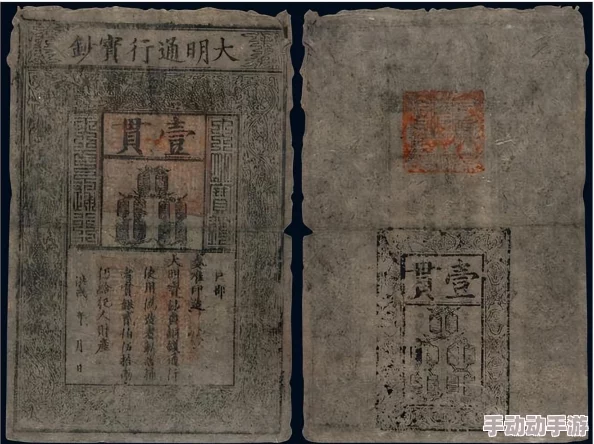 大明通行寶鈔
壹貫
戶部
奏准印造
大明寶鈔與銅錢通行
使用偽造者斬告捕
者賞銀貳伯伍拾兩
仍給犯人財產
洪武 年 月 日
壹貫
手动动手游